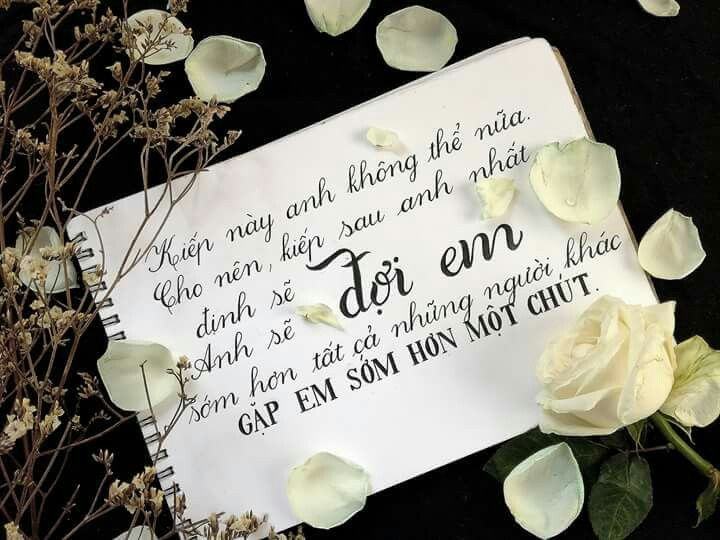 Kiếp này anh không thể nữa.
Cho nên, kiếp sau anh nhất
định sẽ đợi em
Anh sẽ
sớm hơn tất cả những người khác
GẶP EM SỚM HƠN MỘT CHÚT.